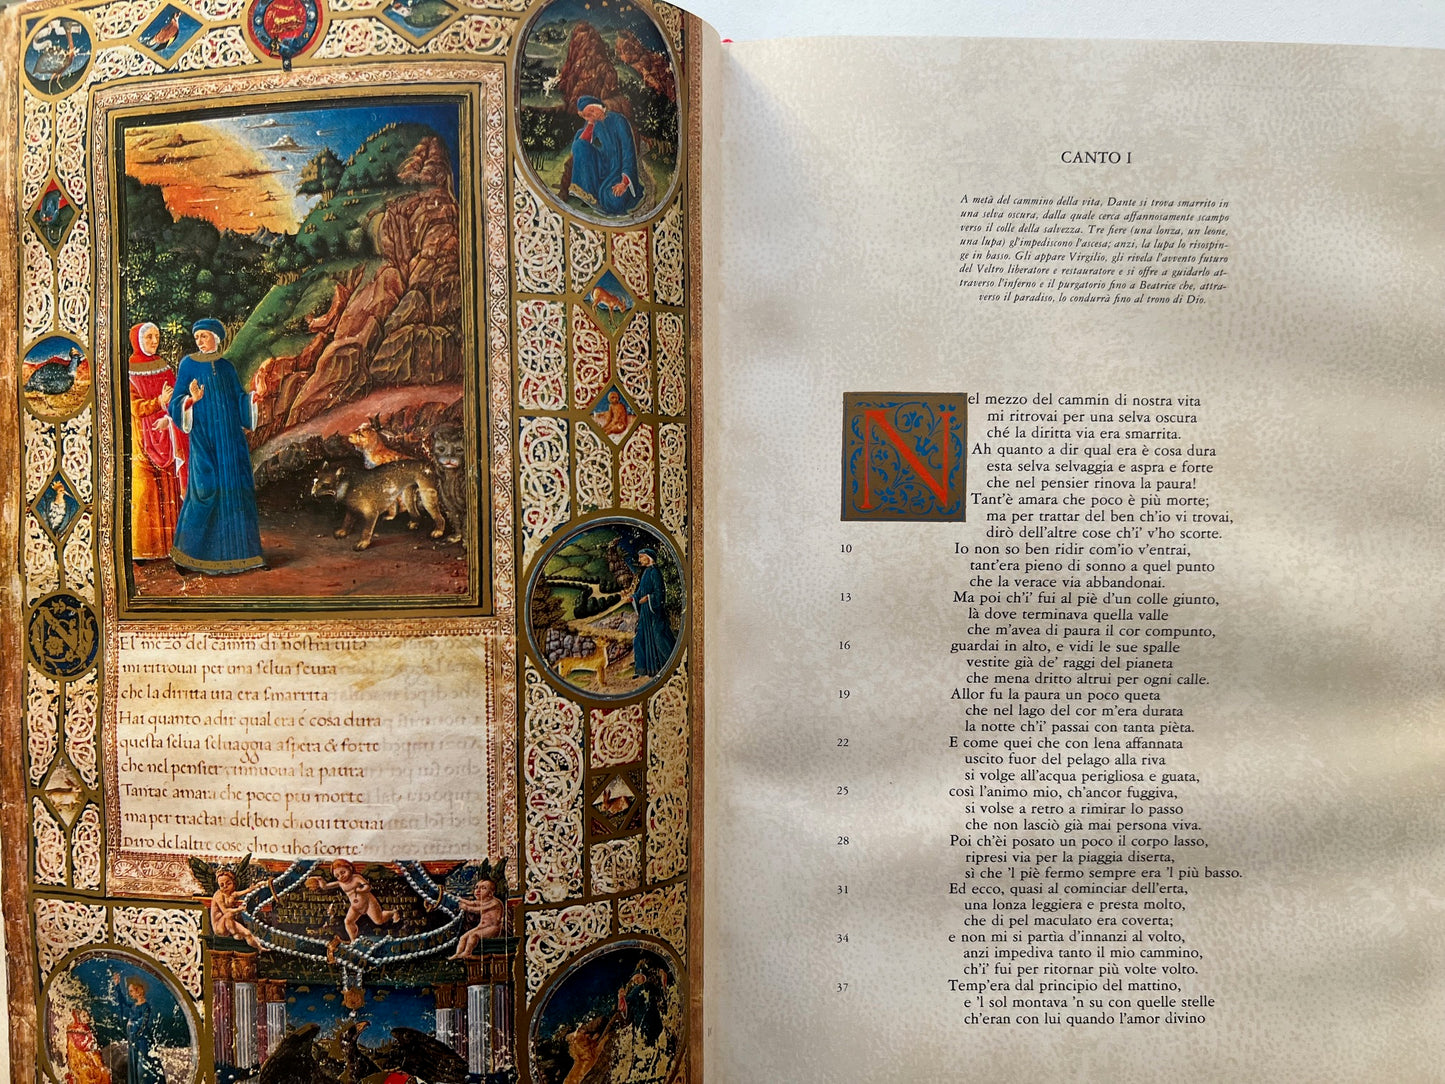 El mezo del camin di nostra uita
mi ritrouai per una selua scura
che la diritta uia era smarrita
Hai quanto a dir qual era é cosa dura
questa selua seluaggia aspera & forte
che nel pensier rinnuoua la paura
Tantae amara che poco piu morte
ma per tractar del ben chio ui trouai
Diro de laltre cose chio uho scorte
CANTO I
A metà del cammino della vita, Dante si trova smarrito in
una selva oscura, dalla quale cerca affannosamente scampo
verso il colle della salvezza. Tre fiere (una lonza, un leone,
una lupa) gl'impediscono l'ascesa; anzi, la lupa lo risospin-
ge in basso. Gli appare Virgilio, gli rivela l'avvento futuro
del Veltro liberatore e restauratore e si offre a guidarlo at-
traverso l'inferno e il purgatorio fino a Beatrice che, attra-
verso il paradiso, lo condurrà fino al trono di Dio.
Nel mezzo del cammin di nostra vita
mi ritrovai per una selva oscura
ché la diritta via era smarrita.
Ah quanto a dir qual era è cosa dura
esta selva selvaggia e aspra e forte
che nel pensier rinova la paura!
Tant'è amara che poco è più morte;
ma per trattar del ben ch'io vi trovai,
dirò dell'altre cose ch'i' v'ho scorte.
10 Io non so ben ridir com'io v'entrai,
tant'era pieno di sonno a quel punto
che la verace via abbandonai.
13 Ma poi ch'i' fui al piè d'un colle giunto,
là dove terminava quella valle
che m'avea di paura il cor compunto,
16 guardai in alto, e vidi le sue spalle
vestite già de' raggi del pianeta
che mena dritto altrui per ogni calle.
19 Allor fu la paura un poco queta
che nel lago del cor m'era durata
la notte ch'i' passai con tanta pièta.
22 E come quei che con lena affannata
uscito fuor del pelago alla riva
si volge all'acqua perigliosa e guata,
25 così l'animo mio, ch'ancor fuggiva,
si volse a retro a rimirar lo passo
che non lasciò già mai persona viva.
28 Poi ch'èi posato un poco il corpo lasso,
ripresi via per la piaggia diserta,
sì che 'l piè fermo sempre era 'l più basso.
31 Ed ecco, quasi al cominciar dell'erta,
una lonza leggiera e presta molto,
che di pel maculato era coverta;
34 e non mi si partìa d'innanzi al volto,
anzi impediva tanto il mio cammino,
ch'i' fui per ritornar più volte volto.
37 Temp'era dal principio del mattino,
e 'l sol montava 'n su con quelle stelle
ch'eran con lui quando l'amor divino